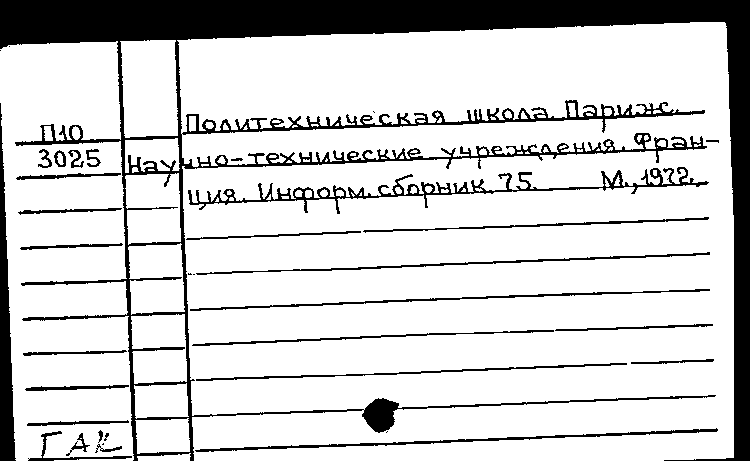 Политехническая школа. Париж.
П10
3025 Научно-технические учреждения. Фран-
ция. Информ. сборник 75. М., 1972.
ГАК